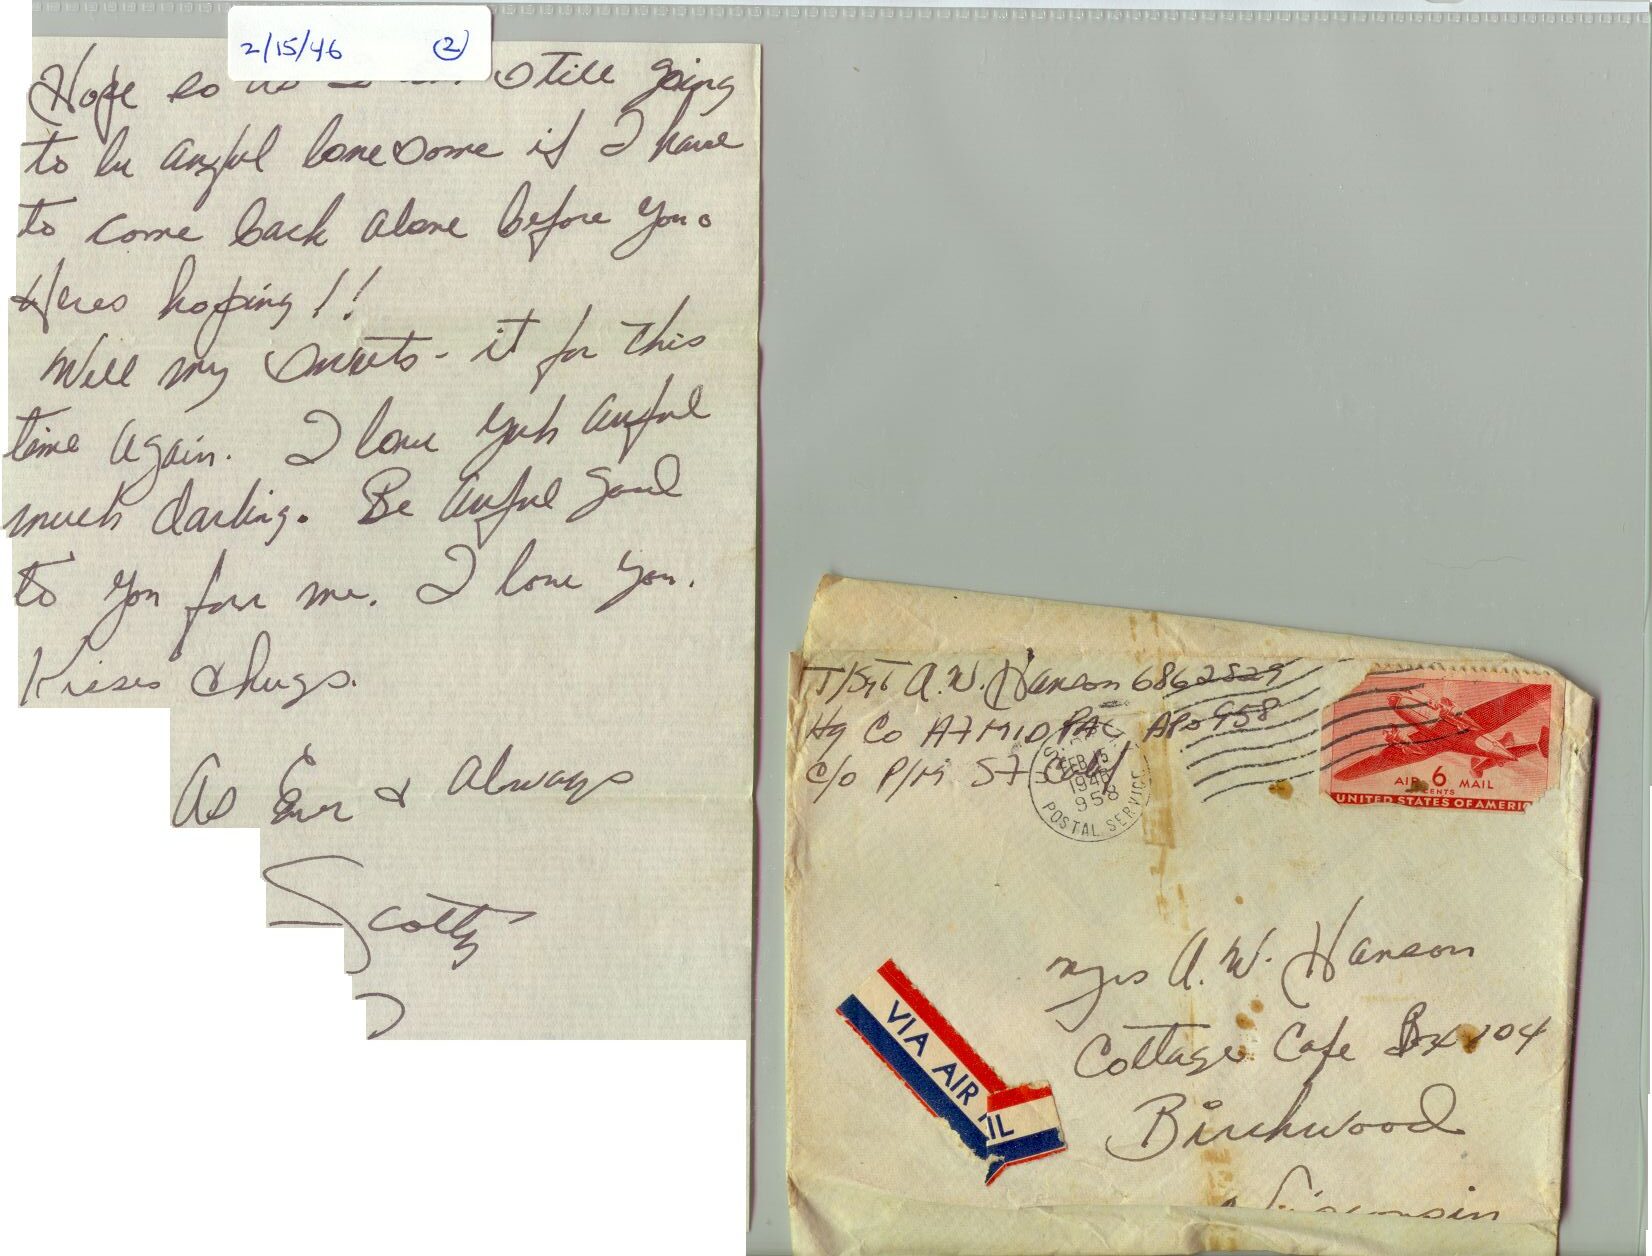 2/15/46 (2)
Hope so as I am still going
to be awful lonesome if I have
to come back alone before you.
Heres hoping!!
Well my sweets - it for this
time again. I love yuh awful
much darling. Be awful good
to you for me. I love you.
Kisses & hugs.
As Ever & Always
Scotty
T/Sgt A.W. Hanson 6862829
Hq Co AFMIDPAC APO 958
c/o P/M SF Calif
FEB 15
1946
958
POSTAL SERVICE
AIR 6 MAIL
CENTS
UNITED STATES OF AMERIC
VIA AIR
IL
Mrs A.W. Hanson
Cottage Cafe Box 104
Birchwood
Wisconsin